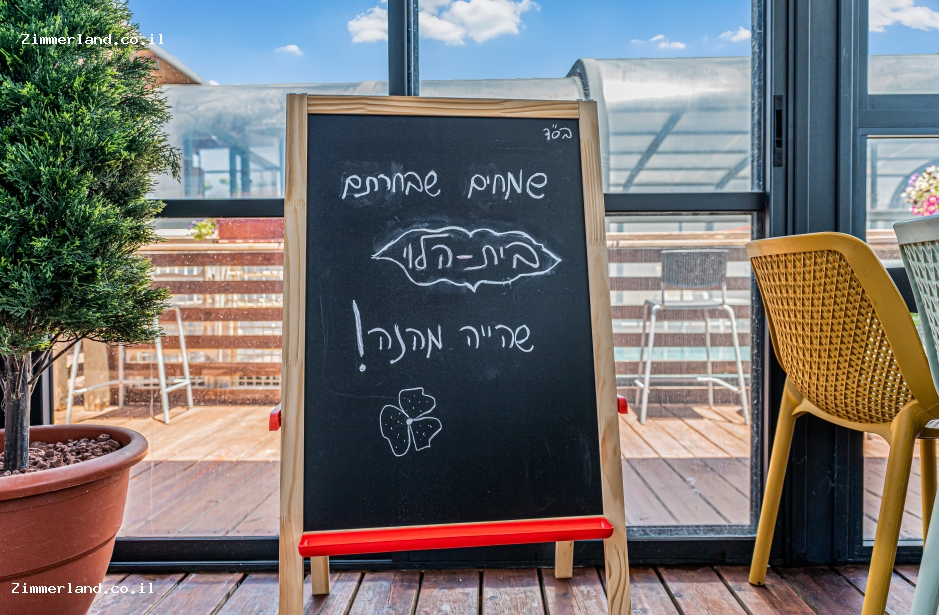 Zimmerland.co.il
בס"ד
שמחים שבחרתם
בית-הלוי
שהייה מהנה!
Zimmerland.co.il